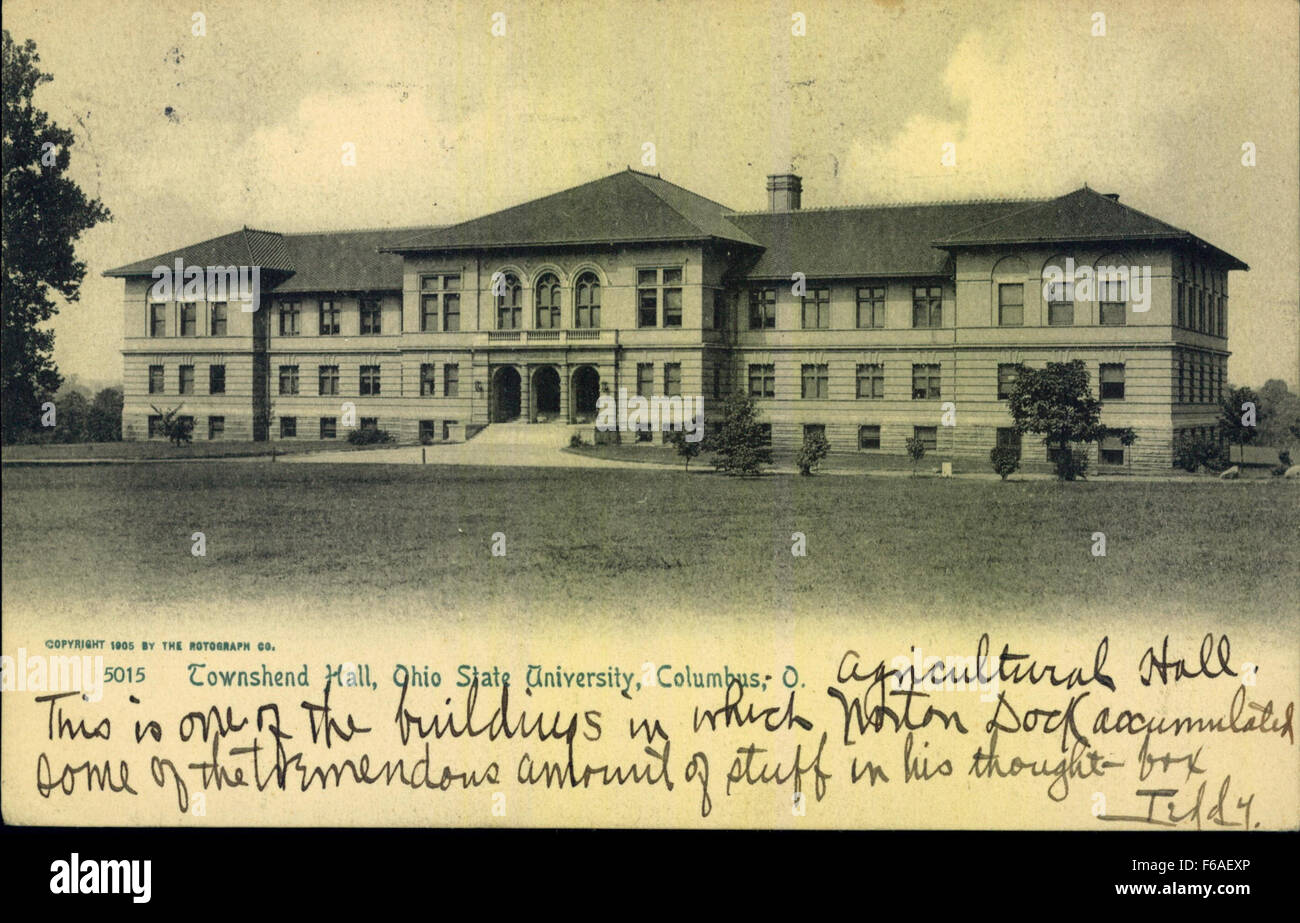 COPYRIGHT 1905 BY THE ROTOGRAPH CO.
5015 Townshend Hall, Ohio State University, Columbus, O. Agricultural Hall.
This is one of the buildings in which Norton Dock accumulated
some of the tremendous amount of stuff in his thought-box
Teddy.
a
alamy
alamy
Image ID: F6AEXP
www.alamy.com